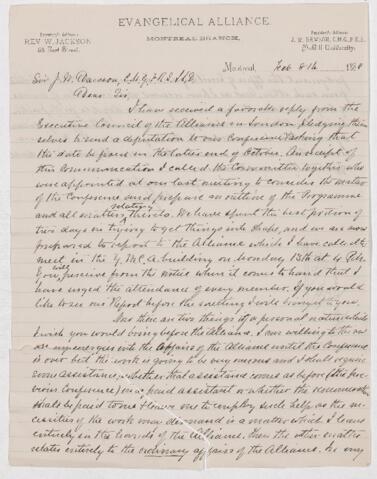 EVANGELICAL ALLIANCE
MONTREAL BRANCH.
REV. W. JACKSON
J. W. DAWSON, C.M.G., F.R.S.
McGill University.
Montreal, Feb 8th 1888
Sir J. W. Dawson, C.M.G. F.R.S. LL.D.
Dear Sir,
I have received a favorable reply from the
Executive Council of the Alliance in London pledging them
selves to send a deputation to our Conference & asking that
the date be fixed in the latter end of October. On receipt of
this Communication I called the Committee together who
was appointed at our last meeting to consider the matter
of the Conference and prepare an outline of the Programme
and all matters relating thereto. We have spent the best portion of
two days in trying to get things into shape, and we are now
prepared to report to the Alliance which I have called to
meet in the Y.M.C.A. building on Monday 13th at 4 P.M.
You will perceive from the notice when it comes to hand that I
have urged the attendance of every member. If you would
like to see our Report before the meeting I will bring it to you.
Now there are two things of a personal nature which
I wish you would bring before the Alliance. I am willing to
my energies into the affairs of the Alliance until the Conference
is over but the work is going to be very onerous and I shall require
some assistance. Whether that assistance comes as before (the pre-
vious Conference) in a paid assistant or whether the remuneration
shall be paid to me & leave me to employ such help as the ne-
cessities of the work may demand is a matter which I leave
entirely in the hands of the Alliance. Then the other matter
relates entirely to the ordinary affairs of the Alliance. In my